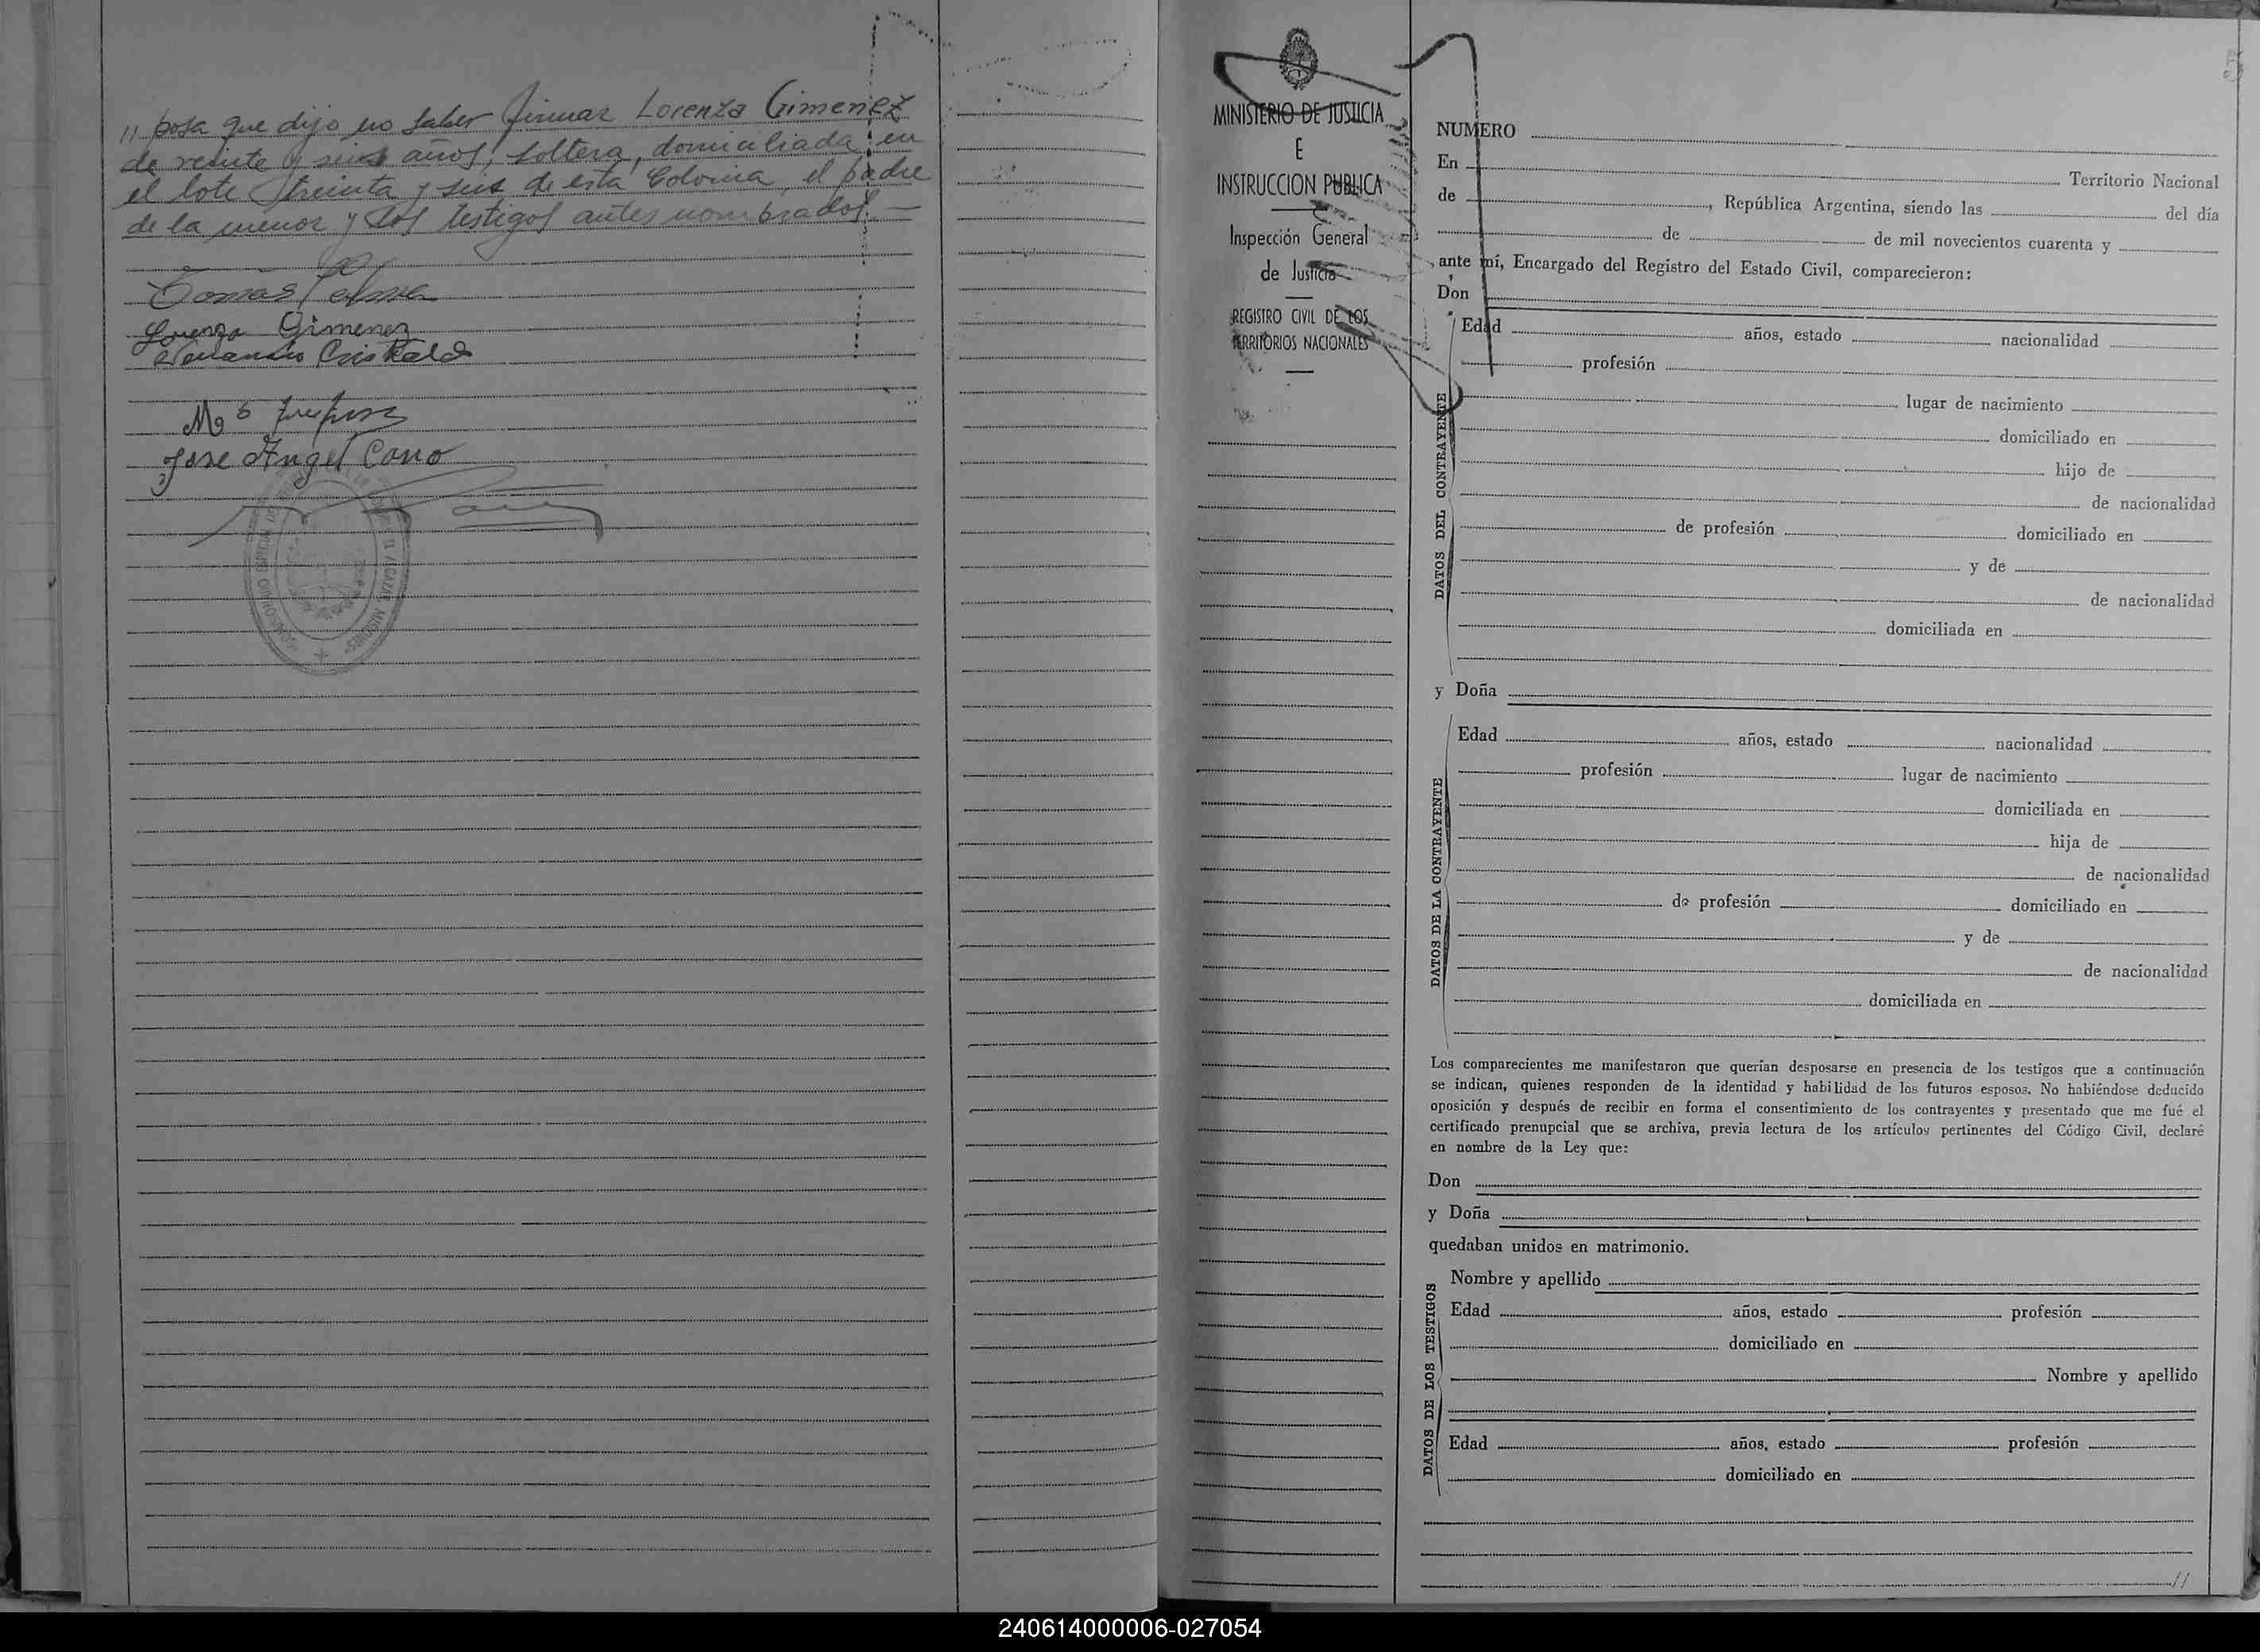 // posa que dijo no saber firmar Lorenza Gimenez
de veinte y seis años, soltera, domiciliada en
el lote treinta y seis de esta Colonia, el padre
de la menor y los testigos antes nombrados.—
Tomas
Lorenza Gimenez
Cristaldo
Jose Angel Cano
MINISTERIO DE JUSTICIA
E
INSTRUCCION PUBLICA
Inspección General
de Justicia
REGISTRO CIVIL DE LOS
TERRITORIOS NACIONALES
5
NUMERO
En Territorio Nacional
de , República Argentina, siendo las del día
de de mil novecientos cuarenta y
ante mí, Encargado del Registro del Estado Civil, comparecieron:
Don
DATOS DEL CONTRAYENTE
Edad años, estado nacionalidad
profesión
lugar de nacimiento
domiciliado en
hijo de
de nacionalidad
de profesión domiciliado en
y de
de nacionalidad
domiciliada en
y Doña
DATOS DE LA CONTRAYENTE
Edad años, estado nacionalidad
profesión lugar de nacimiento
domiciliada en
hija de
de nacionalidad
de profesión domiciliado en
y de
de nacionalidad
domiciliada en
Los comparecientes me manifestaron que querían desposarse en presencia de los testigos que a continuación
se indican, quienes responden de la identidad y habilidad de los futuros esposos. No habiéndose deducido
oposición y después de recibir en forma el consentimiento de los contrayentes y presentado que me fué el
certificado prenupcial que se archiva, previa lectura de los artículos pertinentes del Código Civil, declaré
en nombre de la Ley que:
Don
y Doña
quedaban unidos en matrimonio.
DATOS DE LOS TESTIGOS
Nombre y apellido
Edad años, estado profesión
domiciliado en
Nombre y apellido
Edad años, estado profesión
domiciliado en
//
240614000006-027054